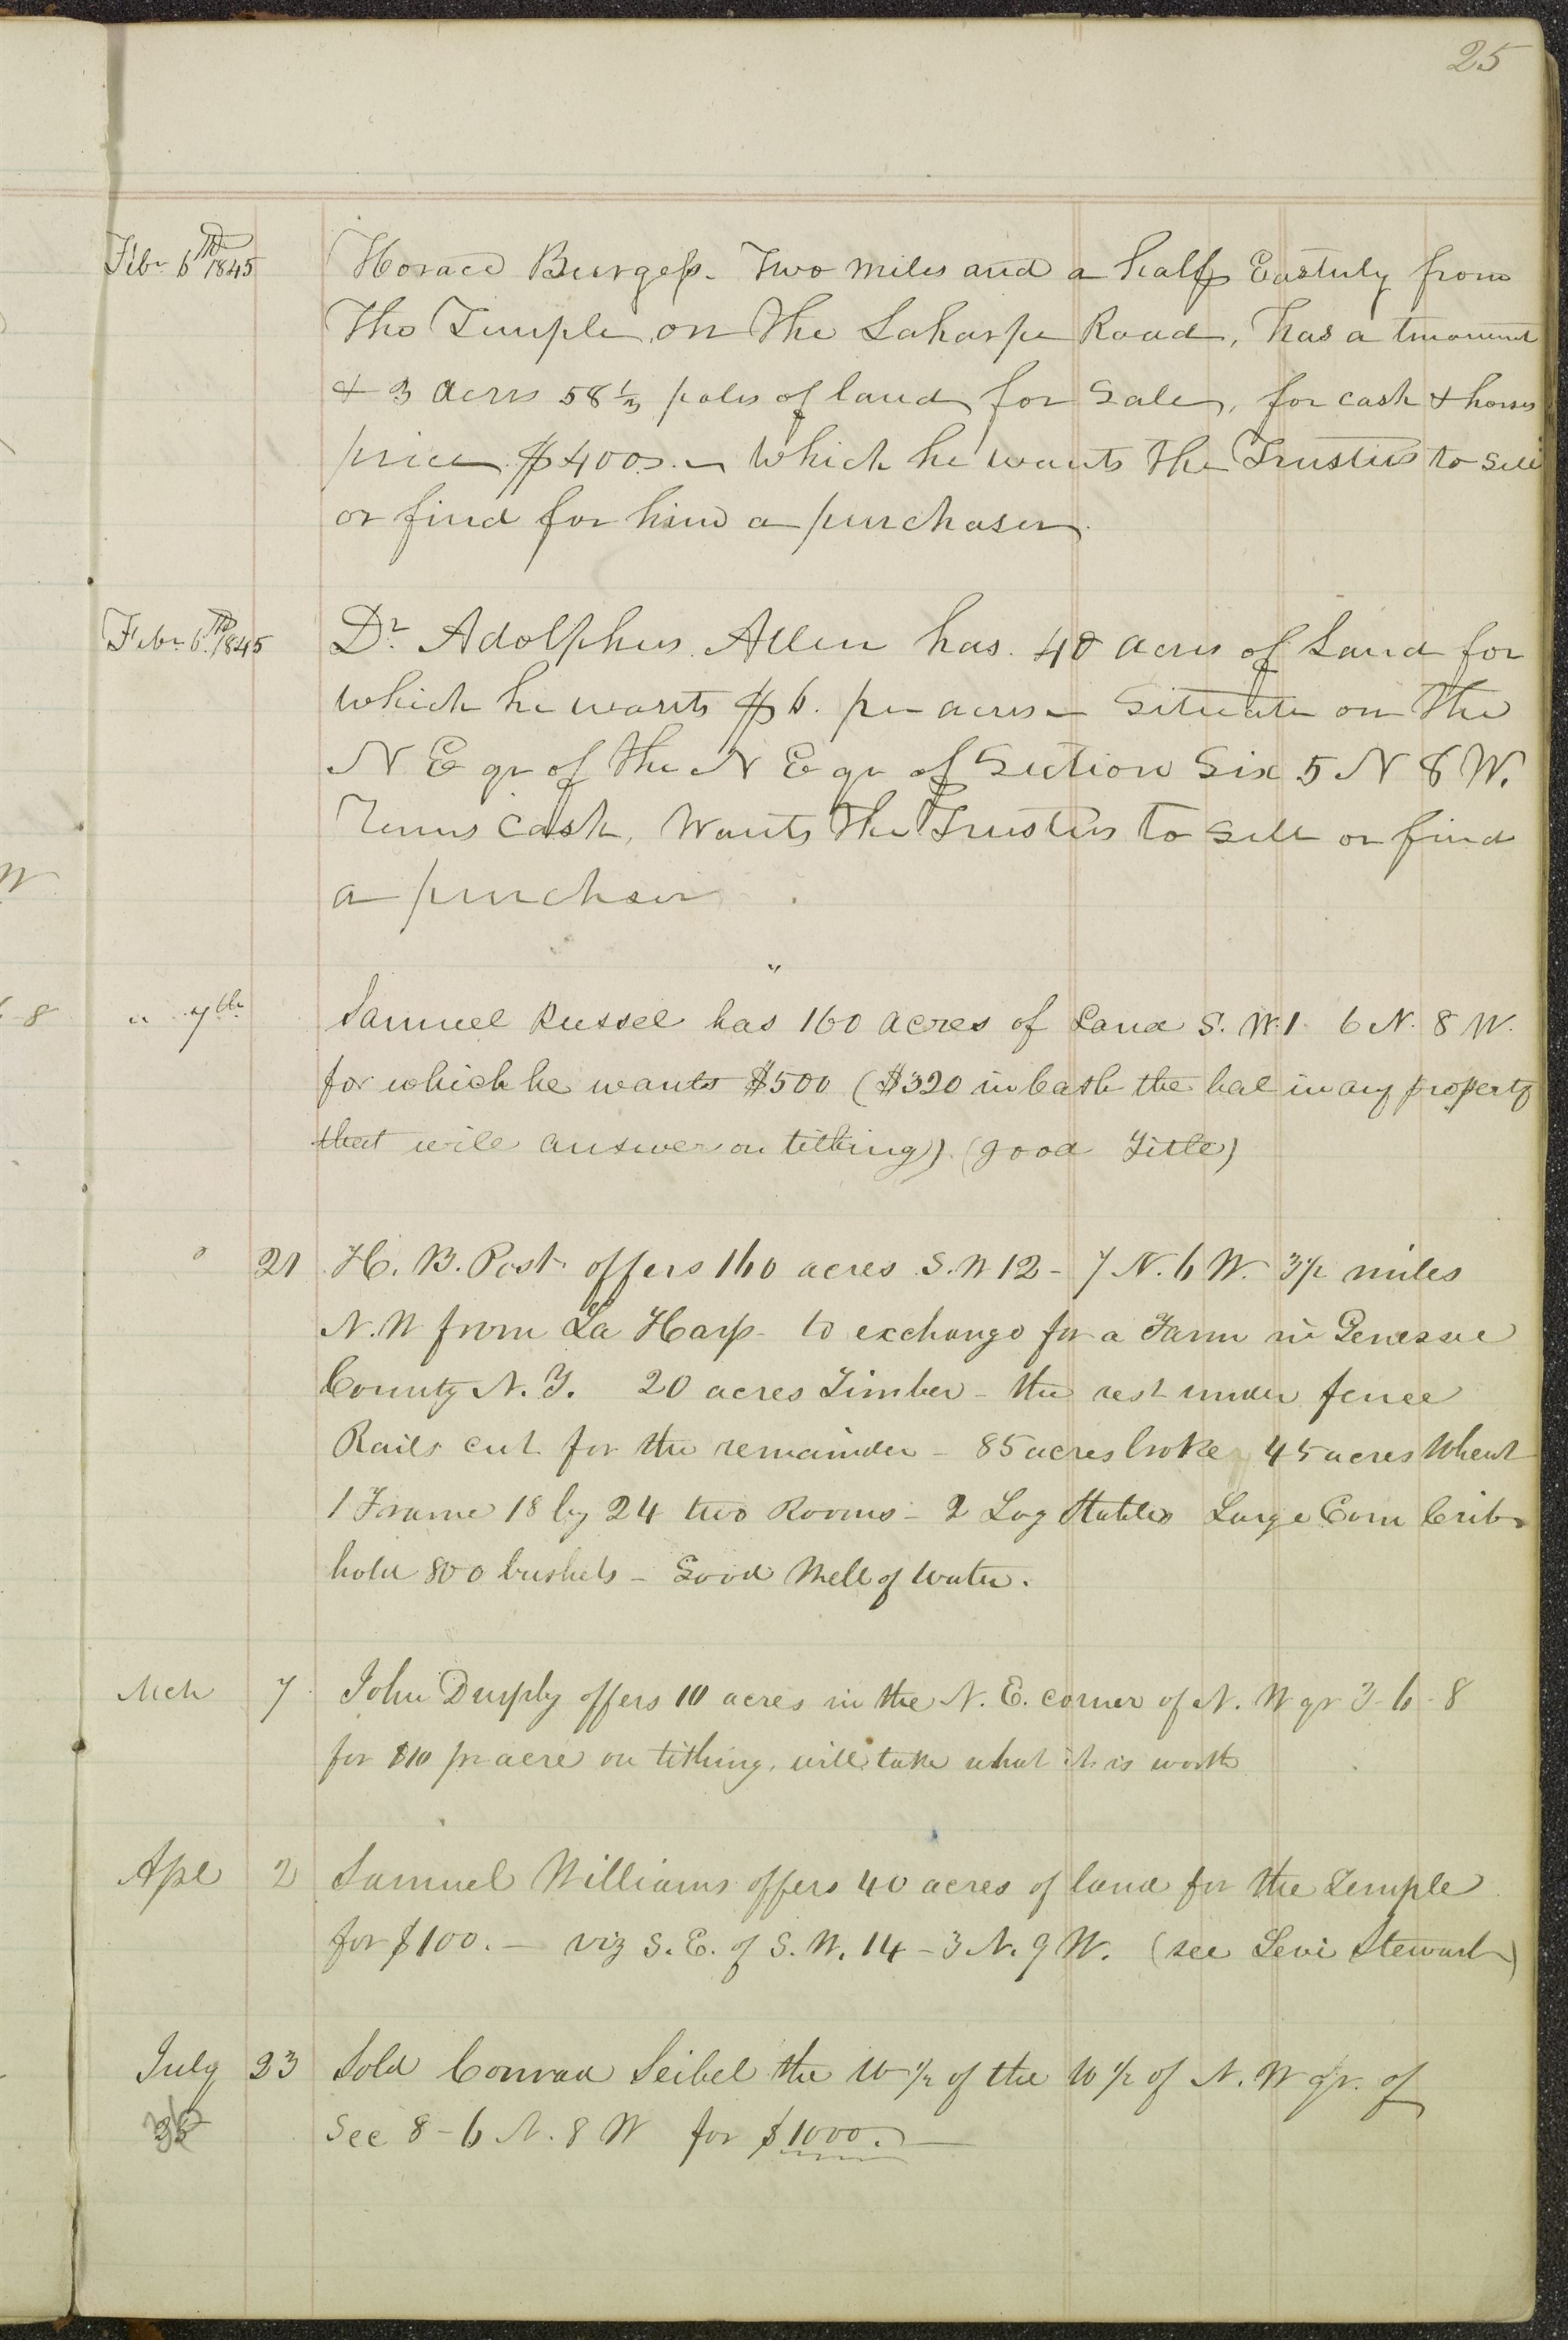 25
Feb 6th 1845 Horace Burgess. Two miles and a half Easterly from
the Temple, on the Laharpe Road, has a tenement
& 3 acres 58 1/3 poles of land for sale, for cash & horses
price $400. – which he wants the Trustees to sell
or find for him a purchaser.
Feb 6th 1845 Dr Adolphus Allen has 40 acres of Land for
which he wants $6. per acre – Situate on the
N E qr of the N E qr of Section Six 5 N 8 W.
Terms Cash, Wants the Trustees to sell or find
a purchser.
"
" 7th Samuel Russel has 160 acres of Land S. W. 1. 6 N. 8 W.
for which he wants $500 ($320 in Cash the bal in any property
that will answer on tithing) (good Title)
" 21 H. B. Post offers 160 acres S. W 12 – 7 N. 6 W. 3 1/2 miles
N. W from La Harp – to exchange for a Farm in Genessee
County N. Y. 20 acres Timber – the rest under fence
Rails cut for the remainder – 85 acres broke 45 acres Wheat
1 Frame 18 by 24 two Rooms – 2 Log Stables Large Corn Crib
hold 800 bushels – Good Well of Water.
Mch 7 John offers 10 acres in the N. E. corner of N. W qr 3 – 6 – 8
for $10 pr acre on tithing, will take what it is worth
Apl 2 Samuel Williams offers 40 acres of land for the Temple
for $100. – viz S. E. of S. W. 14 – 3 N. 9 W. (see Levi Stewart)
July 23 Sold Conrad Seibel the W 1/2 of the W 1/2 of N. W qr. of
Sec 8 – 6 N. 8 W for $1000. –
W
6-8